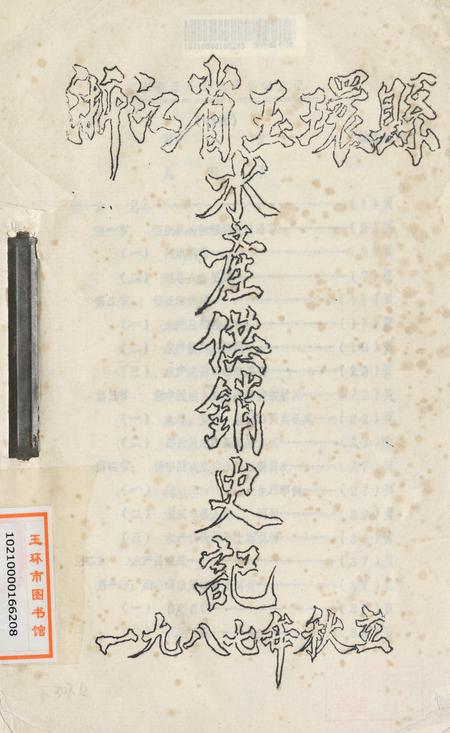 浙江省玉環縣
水產供銷史記
一九八七年秋立
玉环市图书馆
10210000166208